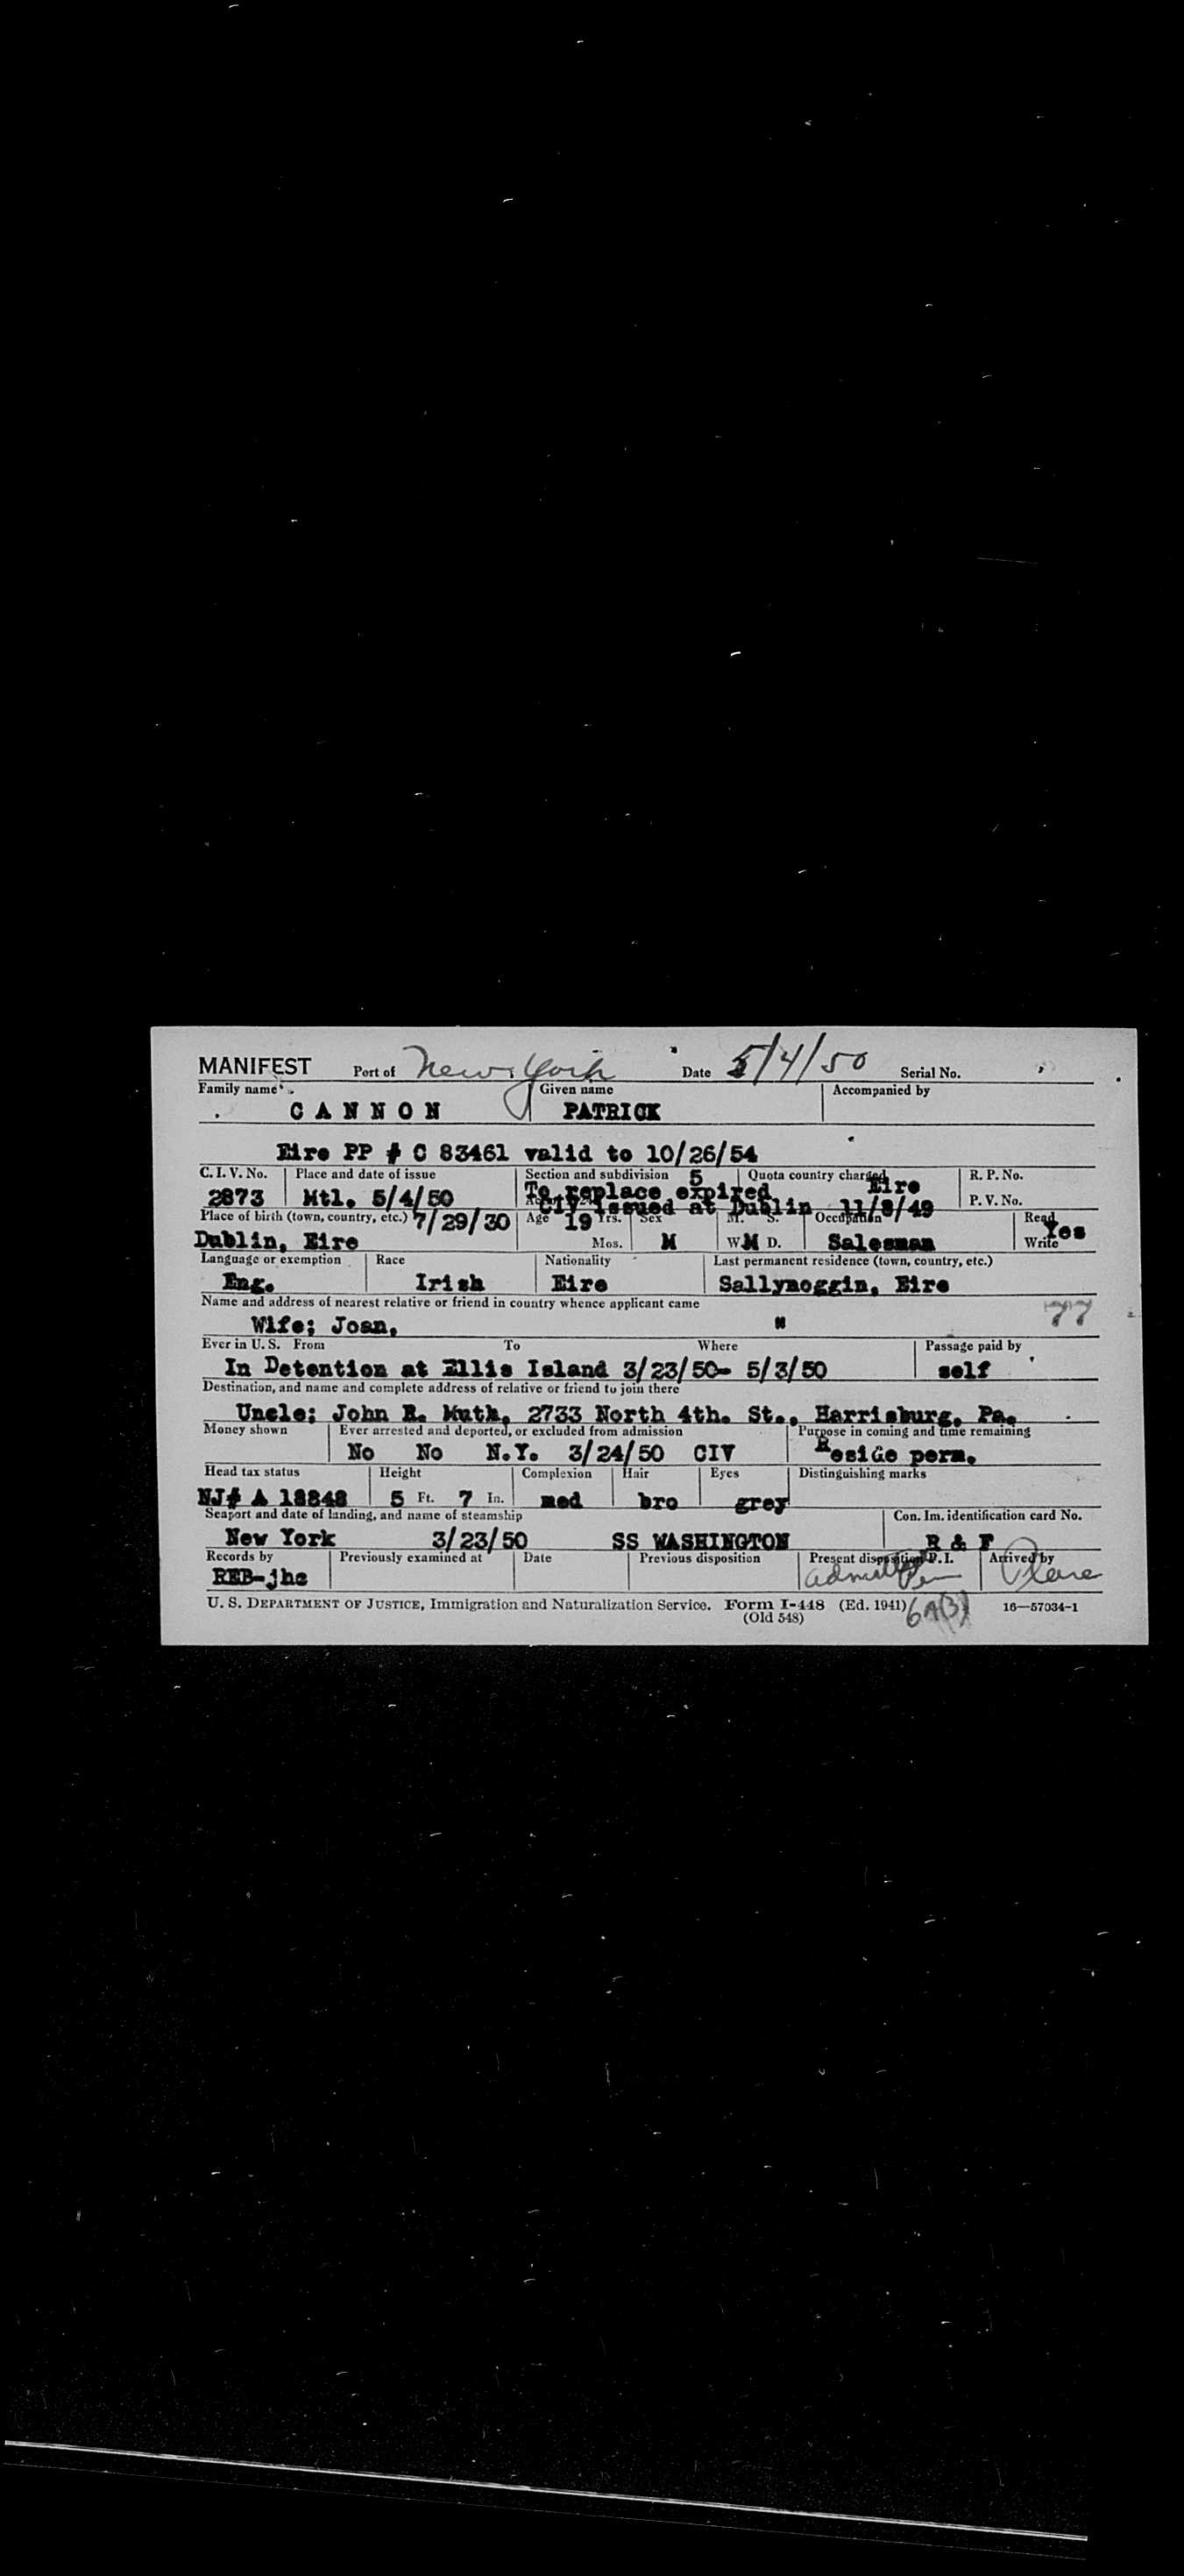 MANIFEST Port of New York Date 5/4/50 Serial No.
Family name Given name Accompanied by
CANNON PATRICK
Eire PP # C 83461 valid to 10/26/54
C. I. V. No. Place and date of issue Section and subdivision 5 Quota country charged Eire R. P. No.
2873 Mtl. 5/4/50 To replace expired P. V. No.
CIV issued at Dublin 11/8/49
Place of birth (town, country, etc.) 7/29/30 Age 19 Yrs. Sex M. S. Occupation Read Yes
Dublin, Eire Mos. M W M D. Salesman Write
Language or exemption Race Nationality Last permanent residence (town, country, etc.)
Eng. Irish Eire Sallynoggin, Eire
Name and address of nearest relative or friend in country whence applicant came 77
Wife; Joan, "
Ever in U. S. From To Where Passage paid by
In Detention at Ellis Island 3/23/50- 5/3/50 self
Destination, and name and complete address of relative or friend to join there
Uncle; John R. Muth, 2733 North 4th. St., Harrisburg, Pa.
Money shown Ever arrested and deported, or excluded from admission Purpose in coming and time remaining
No No N.Y. 3/24/50 CIV Reside perm.
Head tax status Height Complexion Hair Eyes Distinguishing marks
NJ# A 18848 5 Ft. 7 In. med bro grey
Seaport and date of landing, and name of steamship Con. Im. identification card No.
New York 3/23/50 SS WASHINGTON R & F
Records by Previously examined at Date Previous disposition Present disposition P.I. Arrived by
REB-jhc admitted Plane
U. S. DEPARTMENT OF JUSTICE, Immigration and Naturalization Service. Form I-448 (Ed. 1941) 6A(3) 16—57034-1
(Old 548)